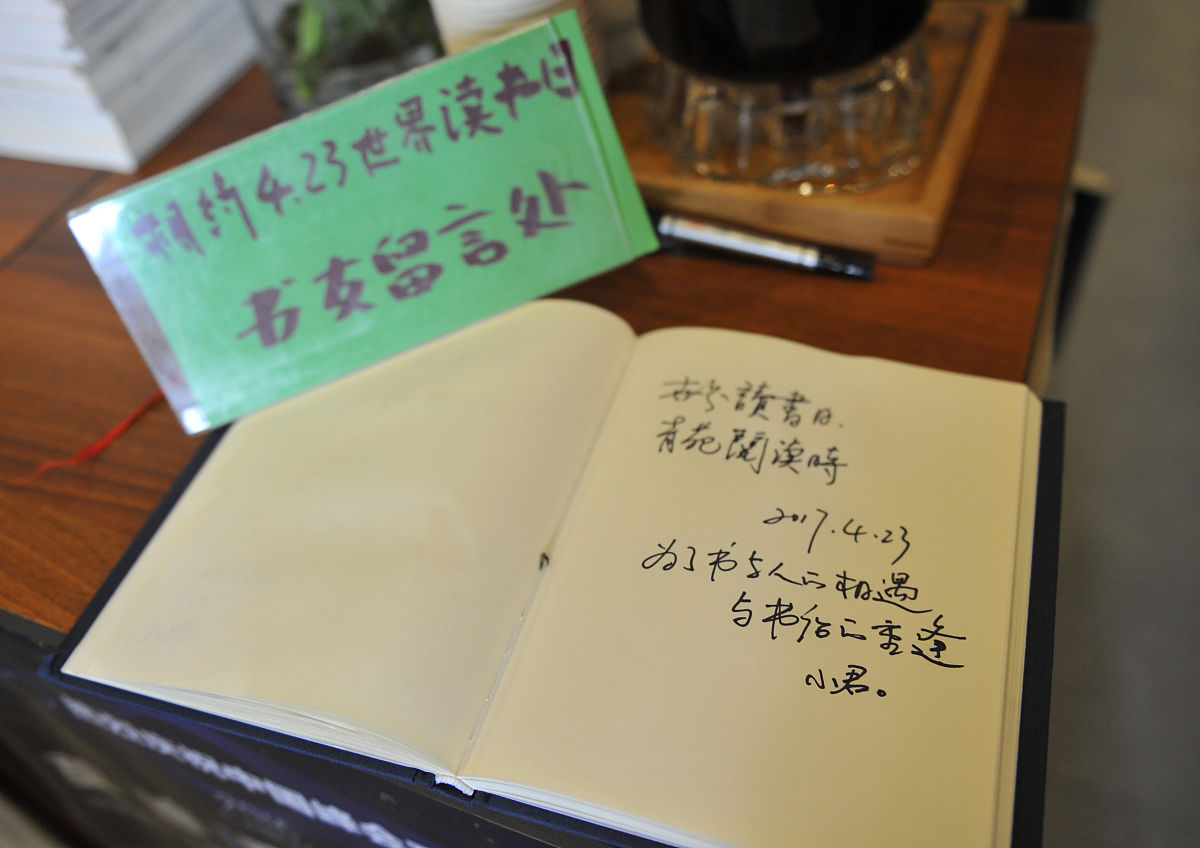 相约4.23世界读书日
书友留言处
读書日.
青苑閱读時
2017.4.23
为了书与人的相遇
与书信的重逢
小君。